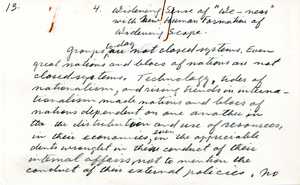 13.
4. Widening Sense of "We-ness"
with New Human Formation of
Widening Scope.
Groups today are not closed systems. Even
great nations and blocs of nations are not
closed systems. Technology, tides of
nationalism, and rising trends in interna-
tionalism made nations and blocs of
nations dependent on one another in
the distribution and use of resources,
in their economies, even in the appreciable
dents wrought in the conduct of their
internal affairs not to mention the
conduct of their external policies. No